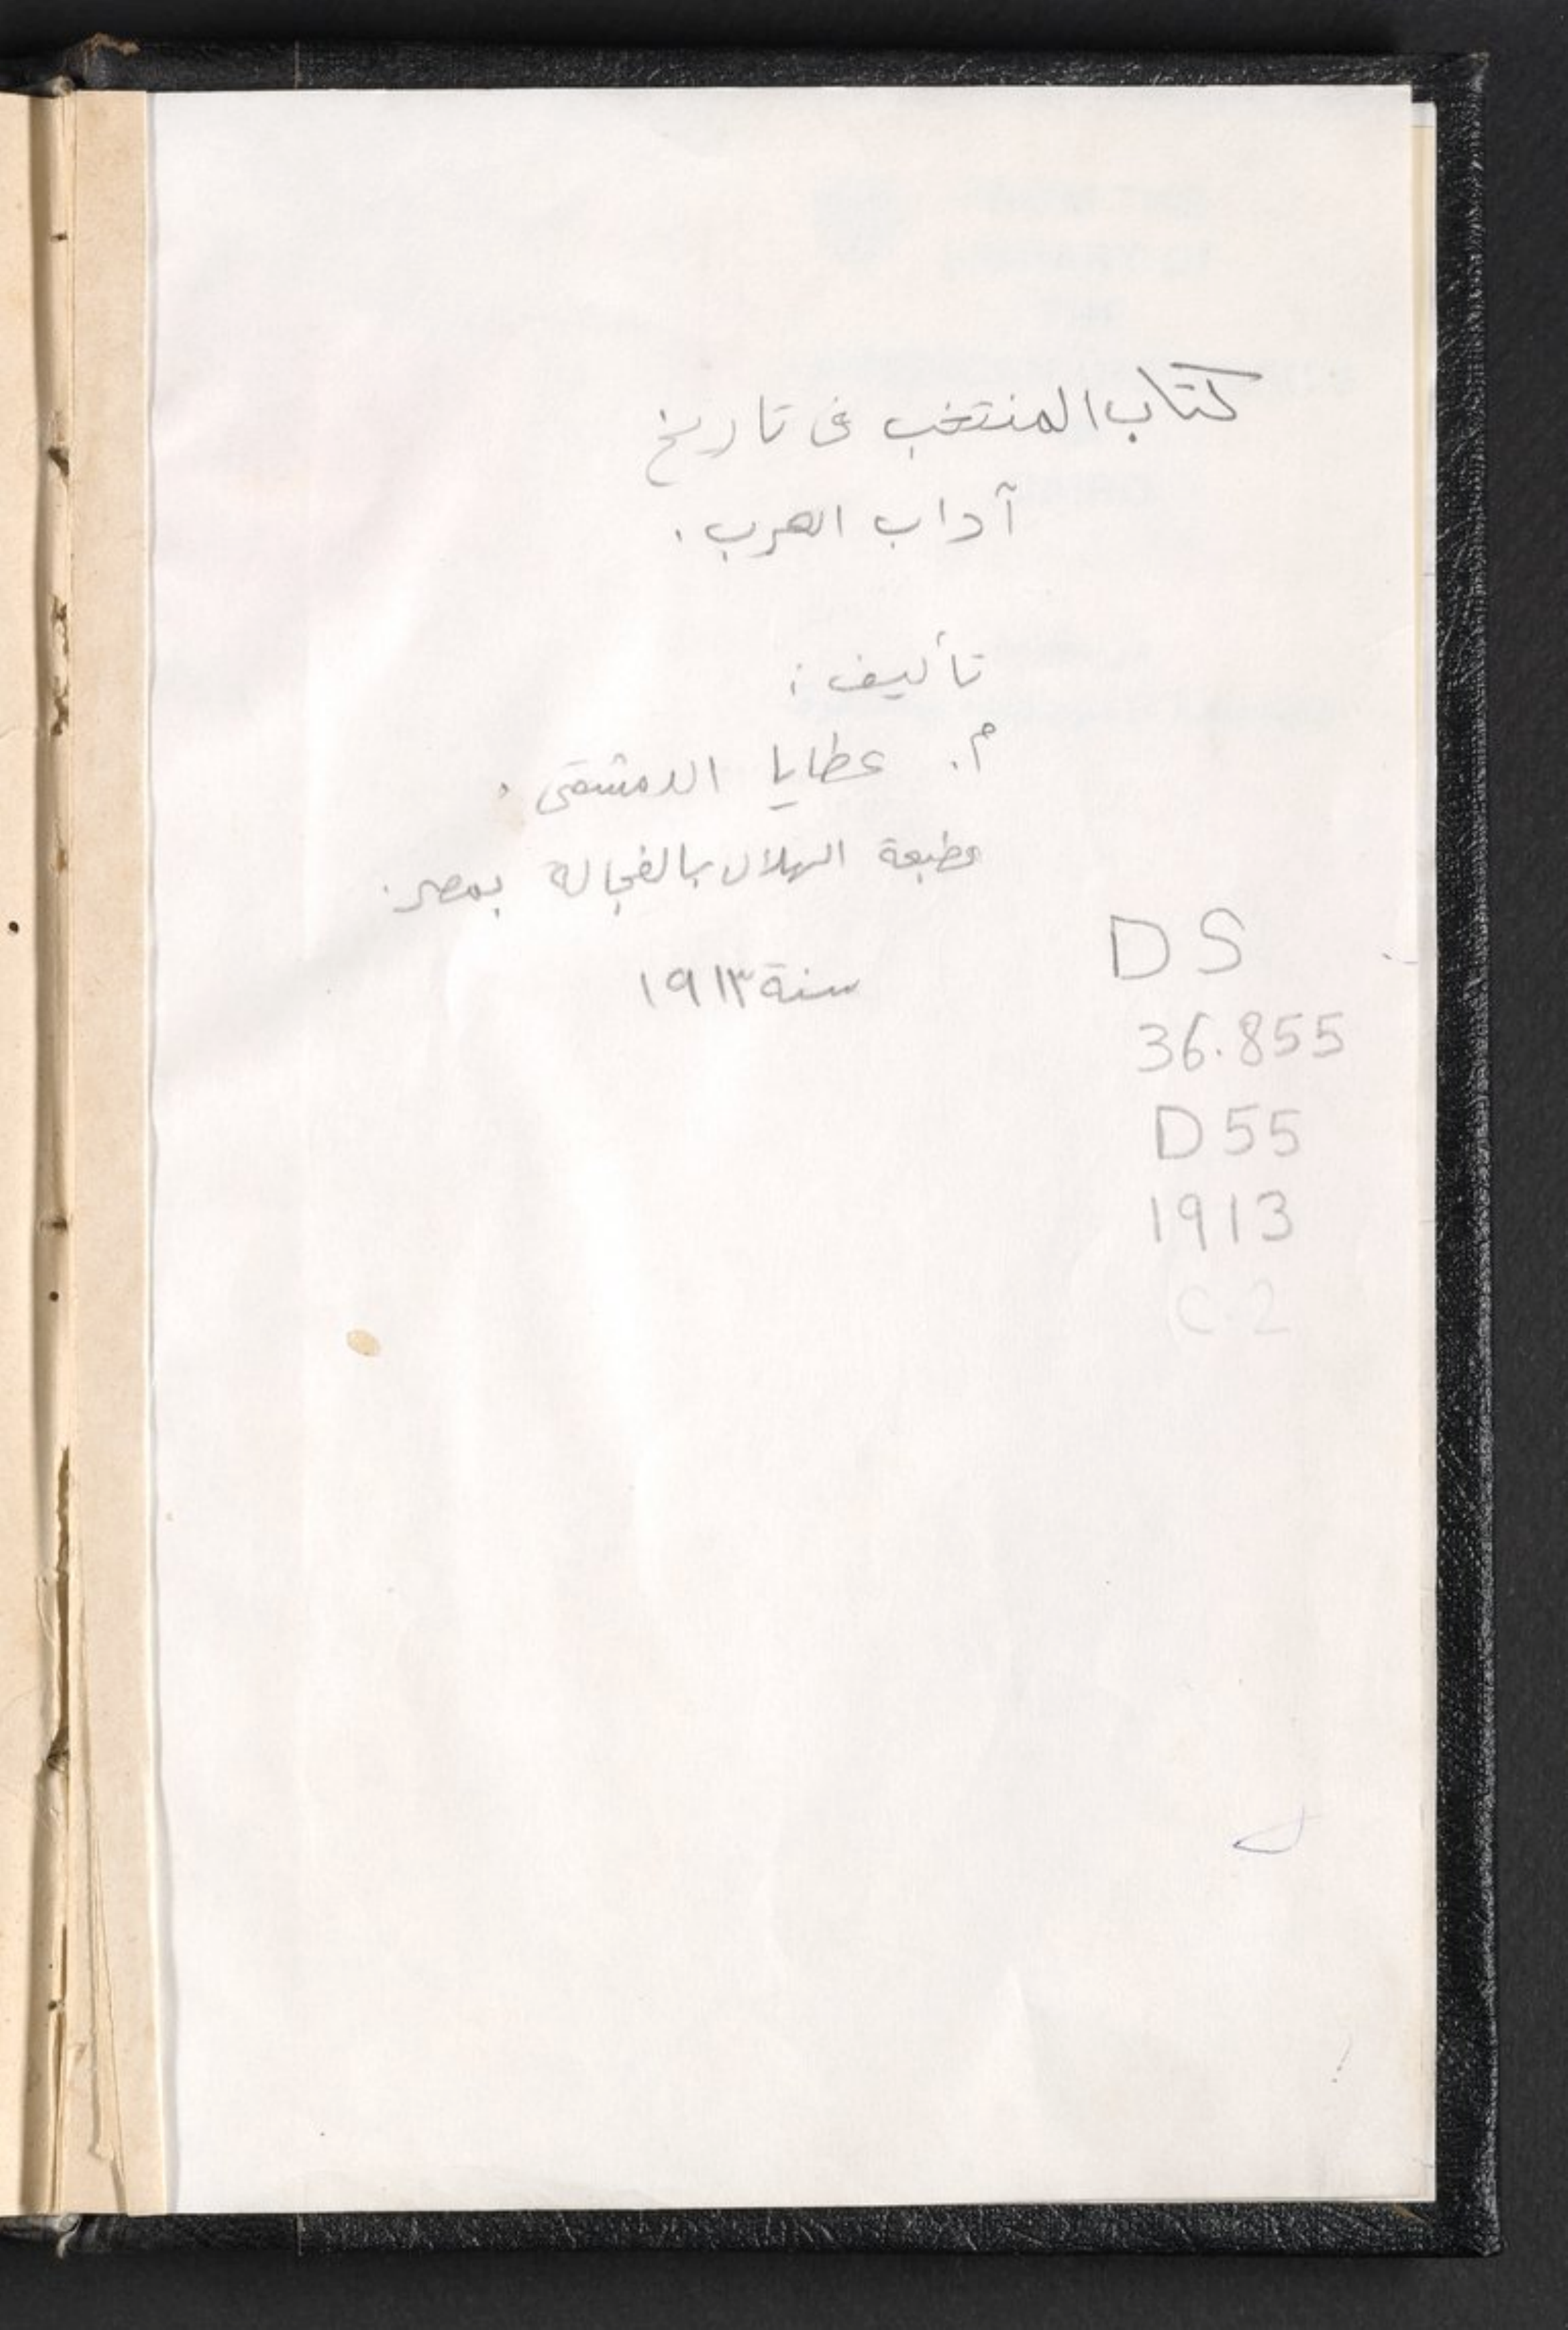 كتاب المنتخب فى تاريخ
آداب العرب .
تأليف :
م . عطايا الدمشقى .
مطبعة الهلال بالفجالة بمصر .
سنة ١٩١٣
DS
36.855
D55
1913
C.2